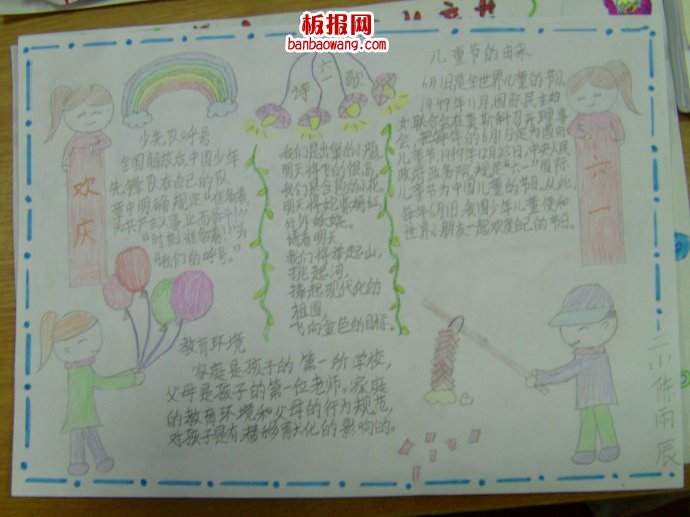 板报网
banbaowang.com
欢庆
少先队呼号
全国解放后中国少年
先锋队在自己的队
章中明确规定“准备着,
为共产主义事业而奋斗!”
“时刻准备着!”为
“我们的呼号。”
六一
诗歌
我们是出巢的小鹰,
明天将飞的很高,
我们是含苞的小花,
明天将姹紫嫣红,
分外妖娆。
请看明天
我们将举起山,
挑起河,
捧起现代化的
祖国,
飞向金色的目标。
儿童节的由来
6月1日是全世界儿童的节日。
1949年11月,国际民主妇
女联合会在莫斯科召开理事
会,把每年的6月1日定为国际
儿童节1949年12月23日,中央人民
政府政务院规定“六一”国际
儿童节为中国儿童的节日。从此,
每年6月1日,我国少年儿童便和
世界小朋友一起欢度自己的节日。
六一
教育环境
家庭是孩子的第一所学校,
父母是孩子的第一位老师。家庭
的教育环境和父母的行为规范,
对孩子是有潜移默化的影响的。
二小陈雨辰